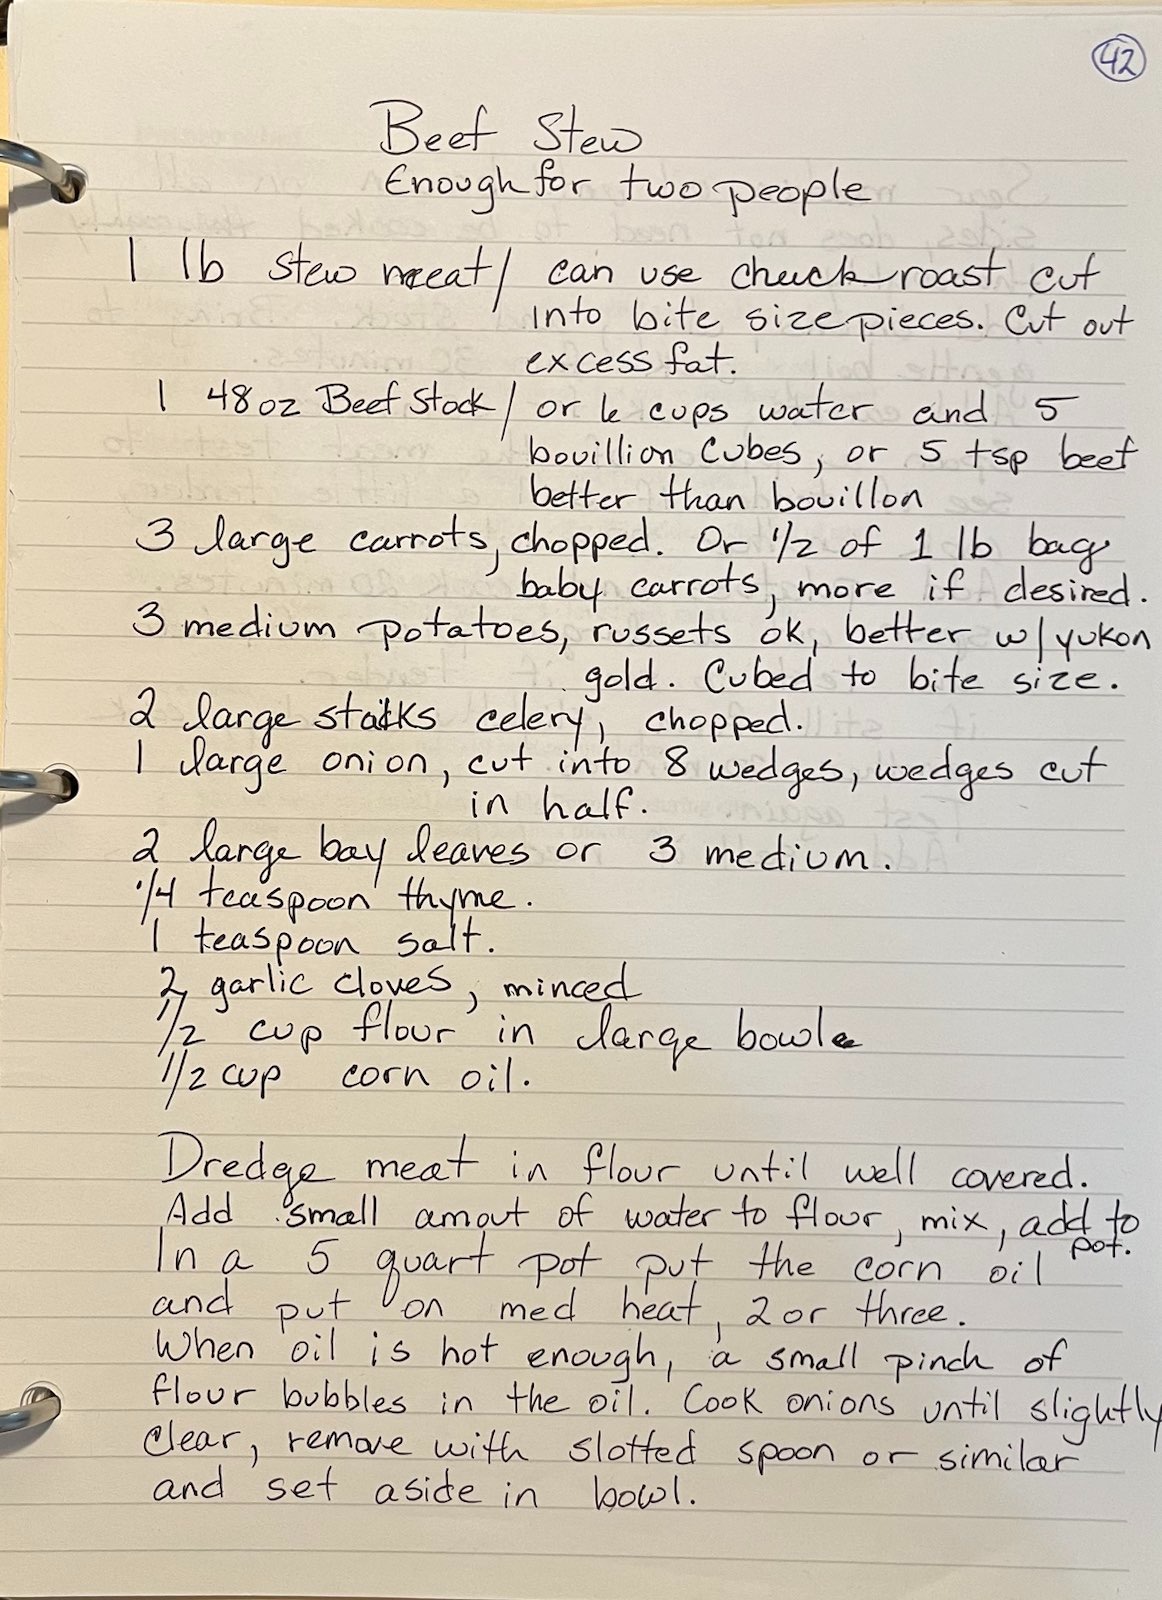 42
Beef Stew
Enough for two people
1 lb stew meat/ can use chuck roast cut
into bite size pieces. Cut out
excess fat.
1 48 oz Beef Stock/ or 6 cups water and 5
bouillion cubes, or 5 tsp beef
better than bouillon
3 large carrots, chopped. Or 1/2 of 1 lb bag
baby carrots, more if desired.
3 medium potatoes, russets ok, better w/ yukon
gold. Cubed to bite size.
2 large stalks celery, chopped.
1 large onion, cut into 8 wedges, wedges cut
in half.
2 large bay leaves or 3 medium.
1/4 teaspoon thyme.
1 teaspoon salt.
2 garlic cloves, minced
1/2 cup flour in large bowl
1/2 cup corn oil.
Dredge meat in flour until well covered.
Add small amout of water to flour, mix, add to
pot.
In a 5 quart pot put the corn oil
and put on med heat, 2 or three.
When oil is hot enough, a small pinch of
flour bubbles in the oil. Cook onions until slightly
clear, remove with slotted spoon or similar
and set aside in bowl.